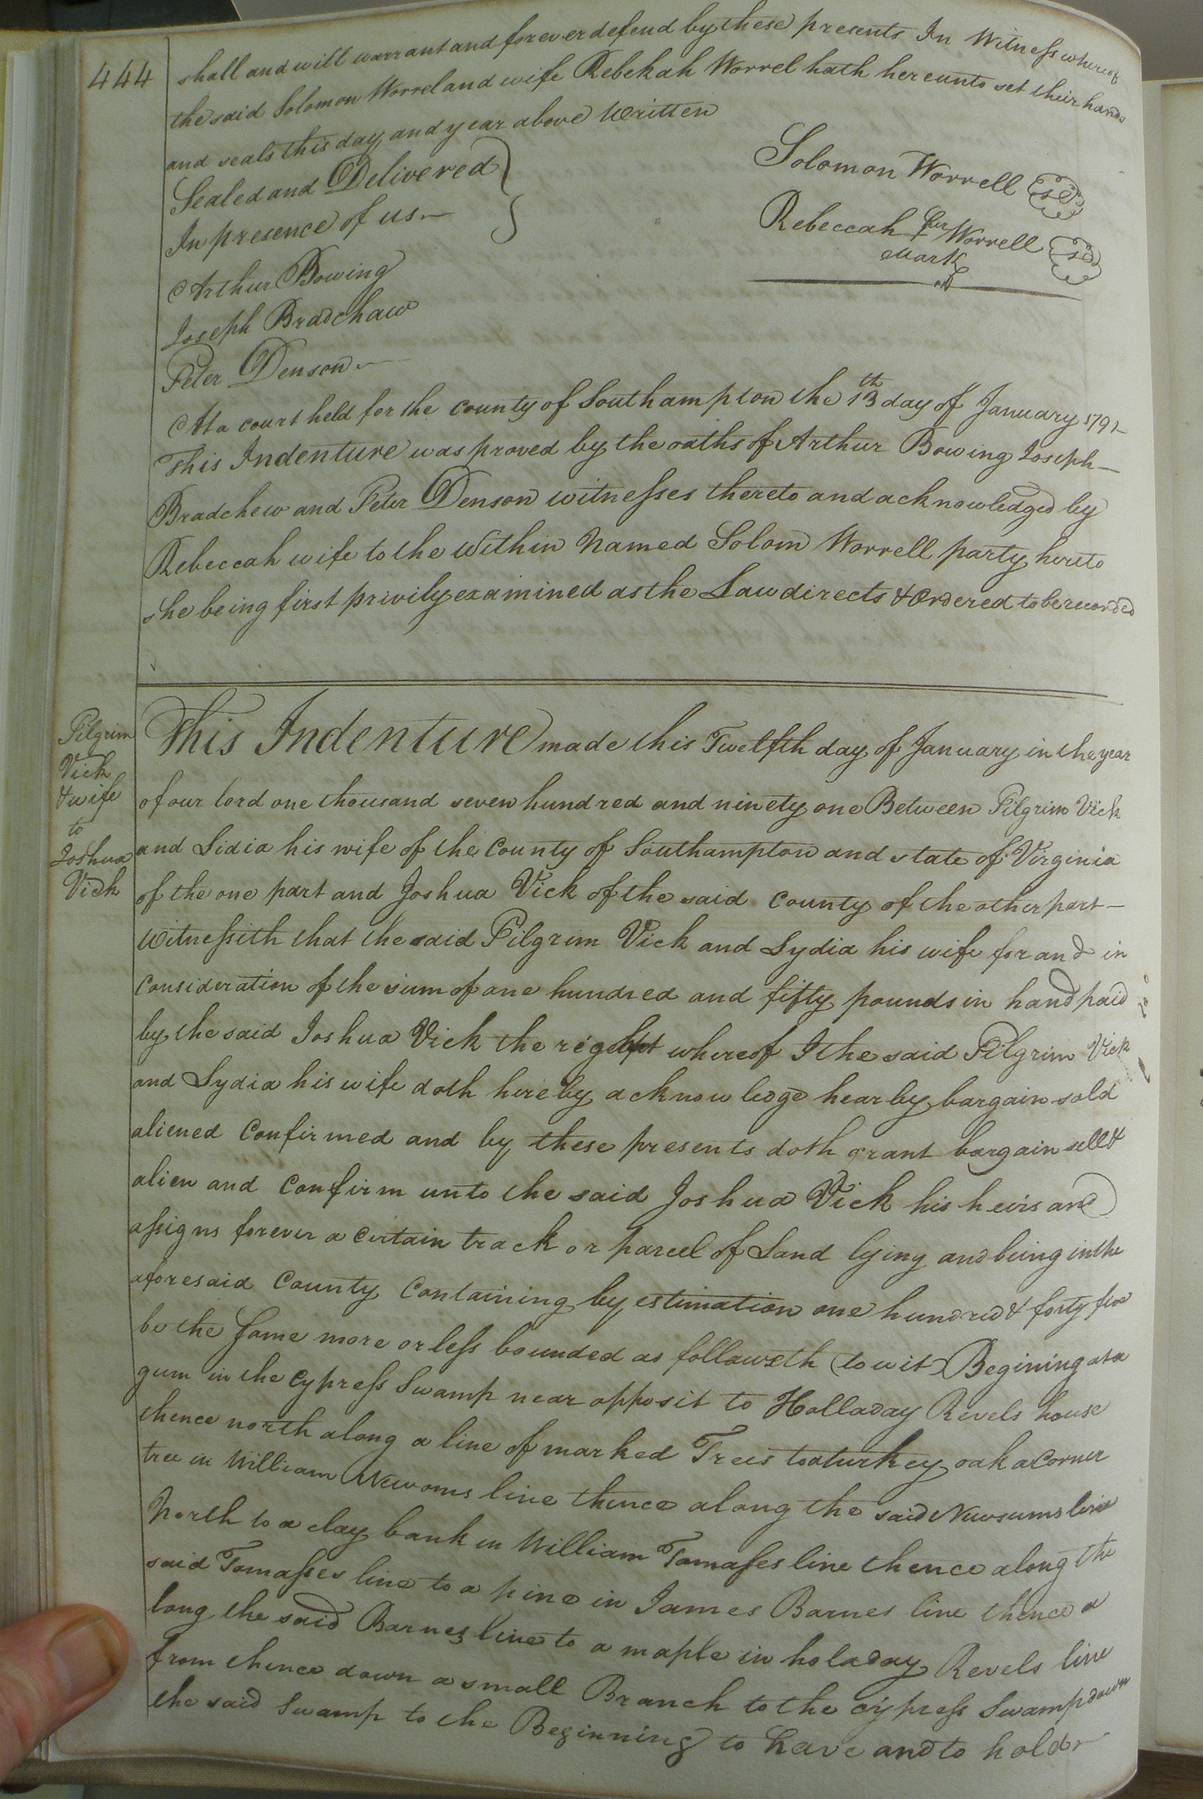 444
shall and will warrant and forever defend by these presents In Witness whereof
the said Solomon Worrel and wife Rebekah Worrel hath hereunto set their hands
and seals this day and year above Written
Sealed and Delivered
In presence of us
Solomon Worrell
Rebeccah her Worrell
Mark
Arthur Bowing
Joseph Bradchaw
Peter Denson
At a court held for the county of Southampton the 13th day of January 1791
This Indenture was proved by the oaths of Arthur Bowing Joseph
Bradchew and Peter Denson witnesses thereto and acknowledged by
Rebeccah wife to the Within Named Solom Worrell party hereto
she being first privily examined as the Law directs & Ordered to be recorded
Pilgrim
Vick
& wife
to
Joshua
Vick
This Indenture made this Twelfth day of January in the year
of our lord one thousand seven hundred and ninety one Between Pilgrim Vick
and Lidia his wife of the County of Southampton and state of Virginia
of the one part and Joshua Vick of the said County of the other part
Witnessith that the said Pilgrim Vick and Lydia his wife for and in
Consideration of the sum of one hundred and fifty pounds in hand paid
by the said Joshua Vick the whereof I the said Pilgrim Vick
and Lydia his wife doth hereby acknowledge hearby bargain sold
aliened Confirmed and by these presents doth grant bargain sell &
alien and Confirm unto the said Joshua Vick his heirs and
assigns forever a Certain track or parcel of Land lying and being in the
aforesaid County Containing by estimation one hundred & forty five
be the same more or less bounded as followeth (to wit) Begining at a
gum in the Cypress Swamp near opposit to Holladay Revels house
thence north along a line of marked Trees to a turkey oak a Corner
tree in William Newsoms line thence along the said Newsums line
North to a clay bank in William Tomasses line thence along the
said Tomasses line to a pine in James Barnes line thence a
long the said Barnes line to a maple in holaday Revels line
from thence down a small Branch to the cypress Swamp down
the said Swamp to the Beginning to have and to hold